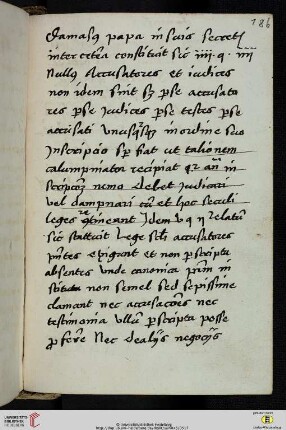 186
Damasus papa in suis secretis
inter cetera constituit sic iiii. q. iiii
Nullus Accusatores et iudices
non idem sint sed per se accusato
res per se Judices per se testes per se
accusati Unusquisque in ordine suo
Inscripcio semper fiat ut talionem
calumpniator recipiat quia ante in
scripcionem nemo debet Judicari
vel dampnari cum et hoc seculi
leges retineant Idem
sic statuit Lege accusatores
presentes exigunt et non per scripta
absentes unde canonica patrum in
stituta non semel sed sepissime
clamant nec accusaciones nec
testimonia ullum per scripta posse
proferre Nec de aliis negociis